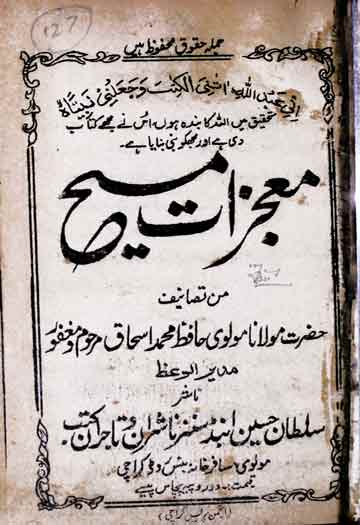 127
جملہ حقوق محفوظ ہیں
اِنِّیْ عَبْدُ اللّٰہِ اٰتٰنِیَ الْکِتٰبَ وَجَعَلَنِیْ نَبِیًّا
تحقیق میں اللہ کا بندہ ہوں، اس نے مجھے کتاب
دی ہے اور مجھکو نبی بنایا ہے۔
معجزات مسیح
من تصانیف
حضرت مولانا مولوی حافظ محمد اسحاق مرحوم و مغفور
مدیر الوعظ
ناشر
سلطان حسین اینڈ سنز ناشران و تاجران کتب
مولوی مسافر خانہ بندر روڈ کراچی
قیمت: دو روپیہ پچاس پیسے
(انجمن پریس کراچی)